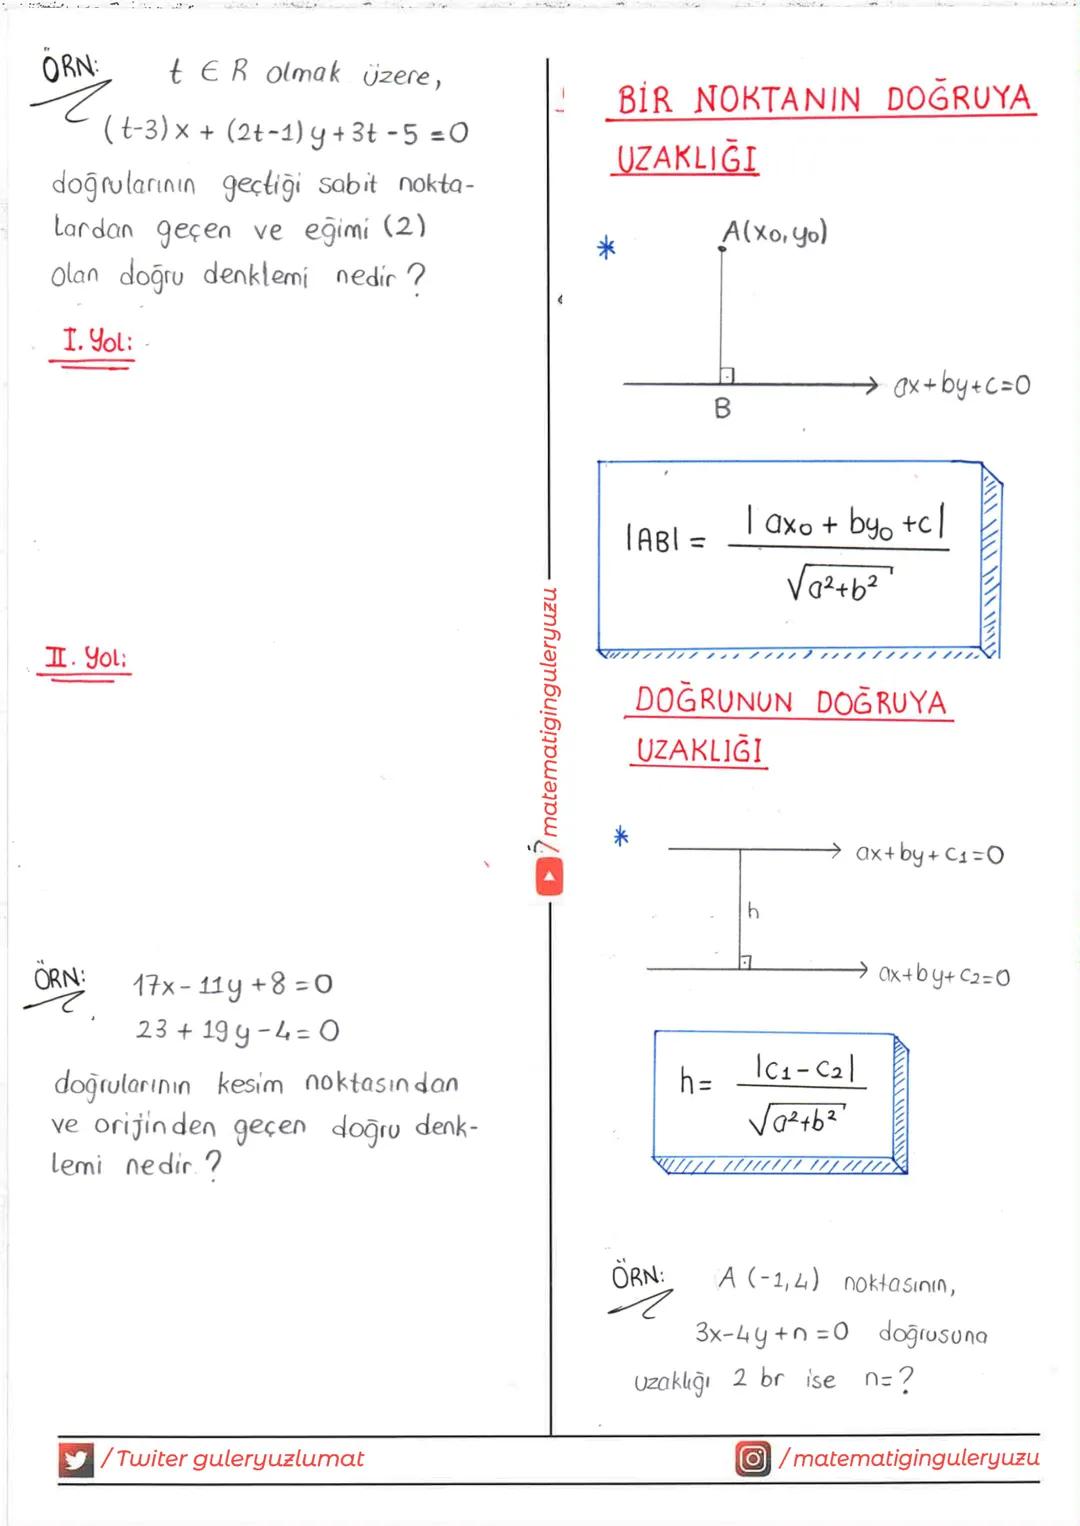 ÖRN: t ∈ R olmak üzere,
(t-3)x + (2t-1)y + 3t - 5 = 0
doğrularının geçtiği sabit nokta-
lardan geçen ve eğimi (2)
olan doğru denklemi nedir?
I. Yol:
II. Yol:
ÖRN: 17x - 11y + 8 = 0
23 + 19y - 4 = 0
doğrularının kesim noktasından
ve orijinden geçen doğru denk-
lemi nedir?
/matematiginguleryuzu
BİR NOKTANIN DOĞRUYA
UZAKLIĞI
* A(x₀, y₀)
ax + by + c = 0
B
|AB| = |ax₀ + by₀ + c| / √a²+b²
DOĞRUNUN DOĞRUYA
UZAKLIĞI
* ax + by + c₁ = 0
h
ax + by + c₂ = 0
h = |c₁ - c₂| / √a²+b²
ÖRN: A(-1,4) noktasının,
3x - 4y + n = 0 doğrusuna
uzaklığı 2 br ise n = ?
/Twiter guleryuzlumat
/matematiginguleryuzu